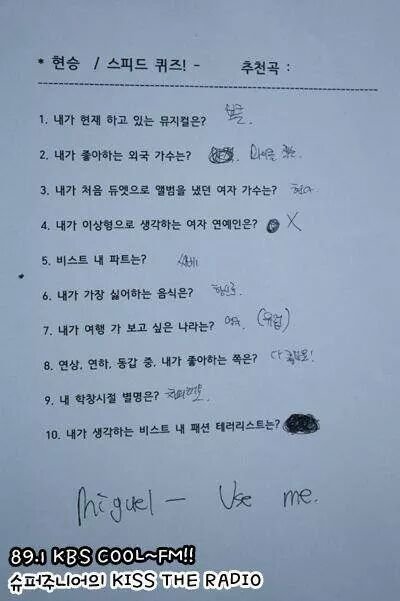 * 현승 / 스피드 퀴즈! - 추천곡 :
1. 내가 현재 하고 있는 뮤지컬은?
2. 내가 좋아하는 외국 가수는? 마이클 잭슨.
3. 내가 처음 듀엣으로 앨범을 냈던 여자 가수는? 현아.
4. 내가 이상형으로 생각하는 여자 연예인은? X
5. 비스트 내 파트는?
6. 내가 가장 싫어하는 음식은?
7. 내가 여행 가 보고 싶은 나라는? (유럽)
8. 연상, 연하, 동갑 중, 내가 좋아하는 쪽은?
9. 내 학창시절 별명은?
10. 내가 생각하는 비스트 내 패션 테러리스트는?
Miguel - Use me.
89.1 KBS COOL~FM!!
슈퍼주니어의 KISS THE RADIO